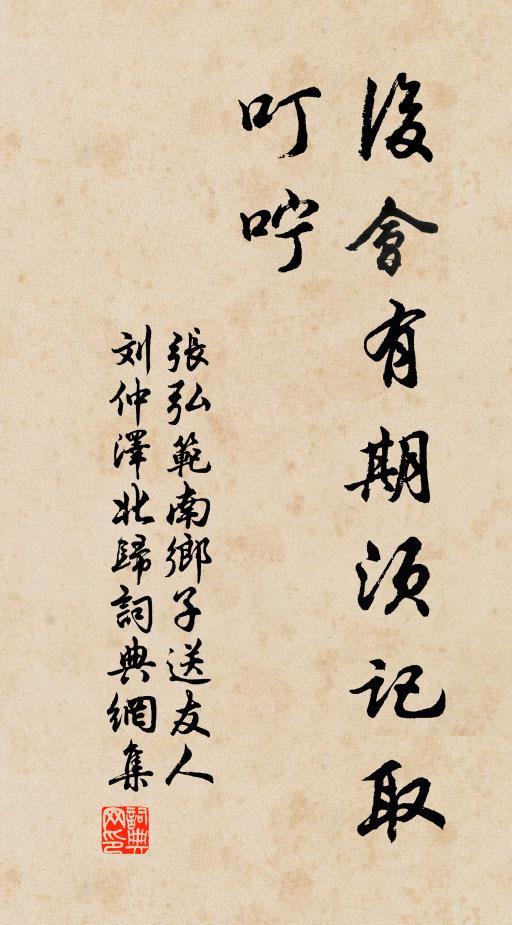 後會有期須記取
叮咛
張弘範南鄉子送友人
刘仲澤北歸詞典網集
詞典
网印